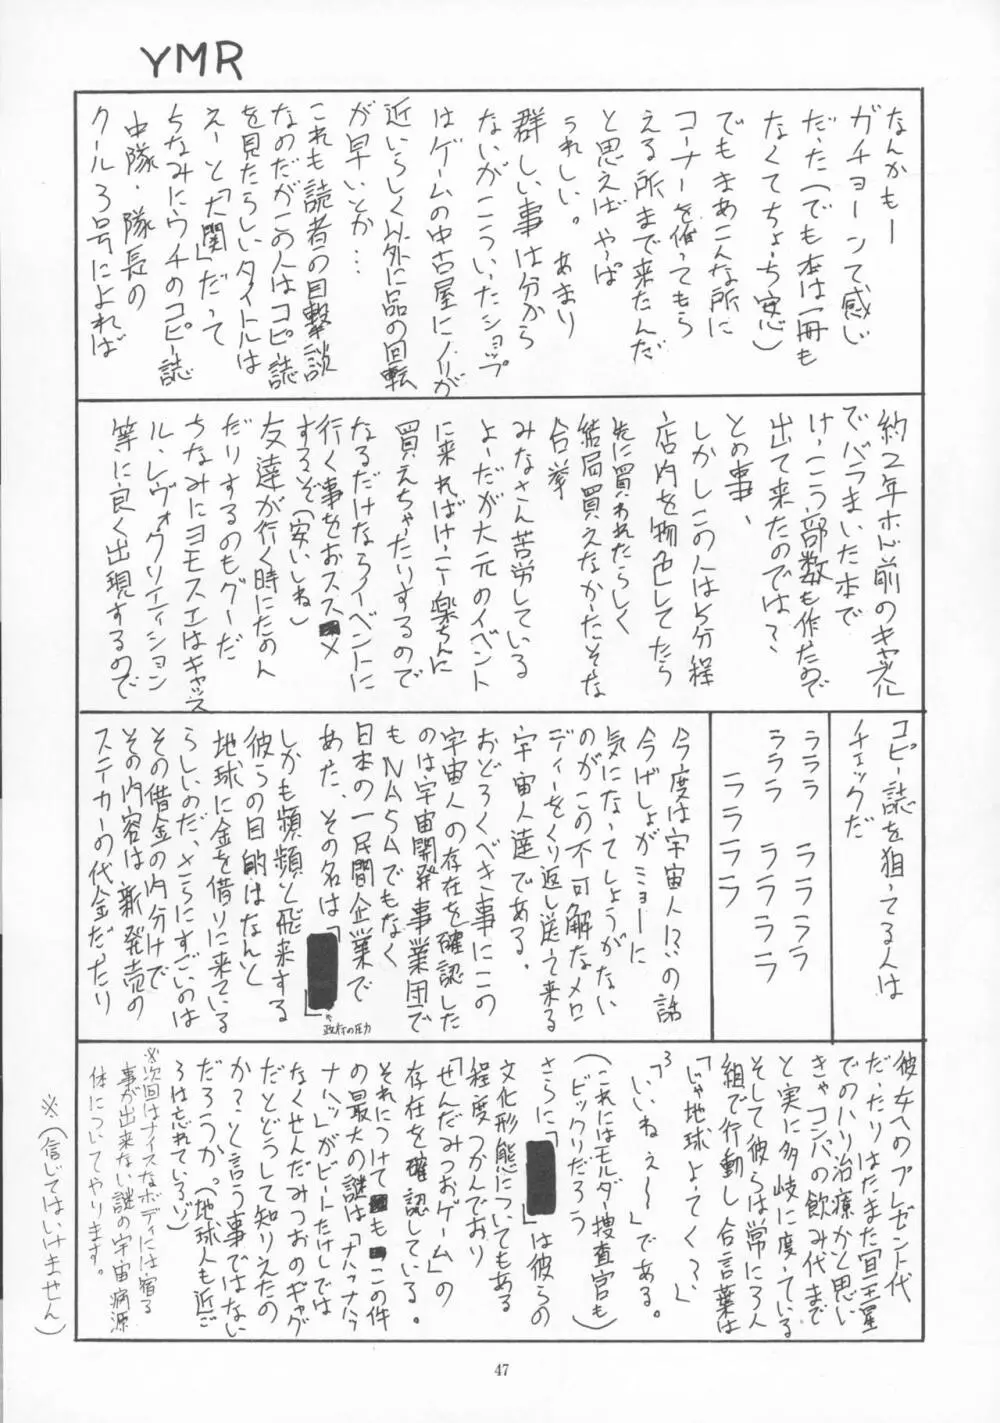 YMR
なんかもー
ガチョーンて感じ
だった(でも本は一冊も
なくてちょっち安心)
でもまあこんな所に
コーナーを作ってもら
える所まで来たんだ
と思えばやっぱ
うれしい。あまり
群しい事は分から
ないがこういったショップ
はゲームの中古屋にノリが
近いらしく以外に品の回転
が早いとか…
これも読者の目撃談
なのだがこの人はコピー誌
を見たらしいタイトルは
えーと「大関」だって
ちなみにウチのコピー誌
中隊・隊長の
クール3号によれば
約2年ホド前のキャノル
でバラまいた本で
けっこう部数も作たので
出て来たのでは?
との事、
しかしこの人は5分程
店内を物色してたら
先に買われたらしく
結局買えなかったそな
合掌
みなさん苦労している
よーだが大元のイベント
に来ればけっこー楽ちんに
買えちゃたりするので
なるだけならイベントに
行く事をおススメ
するぞ(安いしね)
友達が行く時にたのん
だりするのもグーだ
ちなみにヨモスエはキャッス
ル、レヴォ、クリエイション
等に良く出現するので
コピー誌を狙ってる人は
チェックだ
ラララ ララララ
ラララ ララララ
ララララ
今度は宇宙人!?の話
今げしょがミョーに
気になってしょうがない
のがこの不可解なメロ
ディーをくり返し送って来る
宇宙人達である。
おどろくべき事にこの
宇宙人の存在を確認した
のは宇宙開発事業団で
もNASAでもなく
日本の一民間企業で
あった、その名は「
」
政府の圧力
しかも頻頻と飛来する
彼らの目的はなんと
地球に金を借りに来ている
らしいのだ、さらにすごいのは
その借金の内分けで
その内容は新発売の
ステイカーの代金だったり
彼女へのプレゼント代
だったりはたまた冥王星
でのハリ治療かと思い
きゃコンパの飲み代まで
と実に多岐に度っている
そして彼らは常に3人
組で行動し合言葉は
「じゃ地球よってく?」、
「いいねぇ〜」である。
(これにはモルダー捜査官も
ビックリだろう
さらに「
」は彼らの
文化形態についてもある
程度つかんでおり
「せんだみつおゲーム」の
存在を確認している。
それにつけても この件
の最大の謎は「ナハッナハッ
ナハッ」がビートたけしでは
なくせんだみつおのギャグ
だとどうして知りえたの
か?と言う事ではない
だろうか。(地球人も近ご
ろは忘れているゾ)
※次回はナイスなボディには宿る
事が出来ない謎の宇宙病源
体についてやります。
※(信じてはいけません)
47